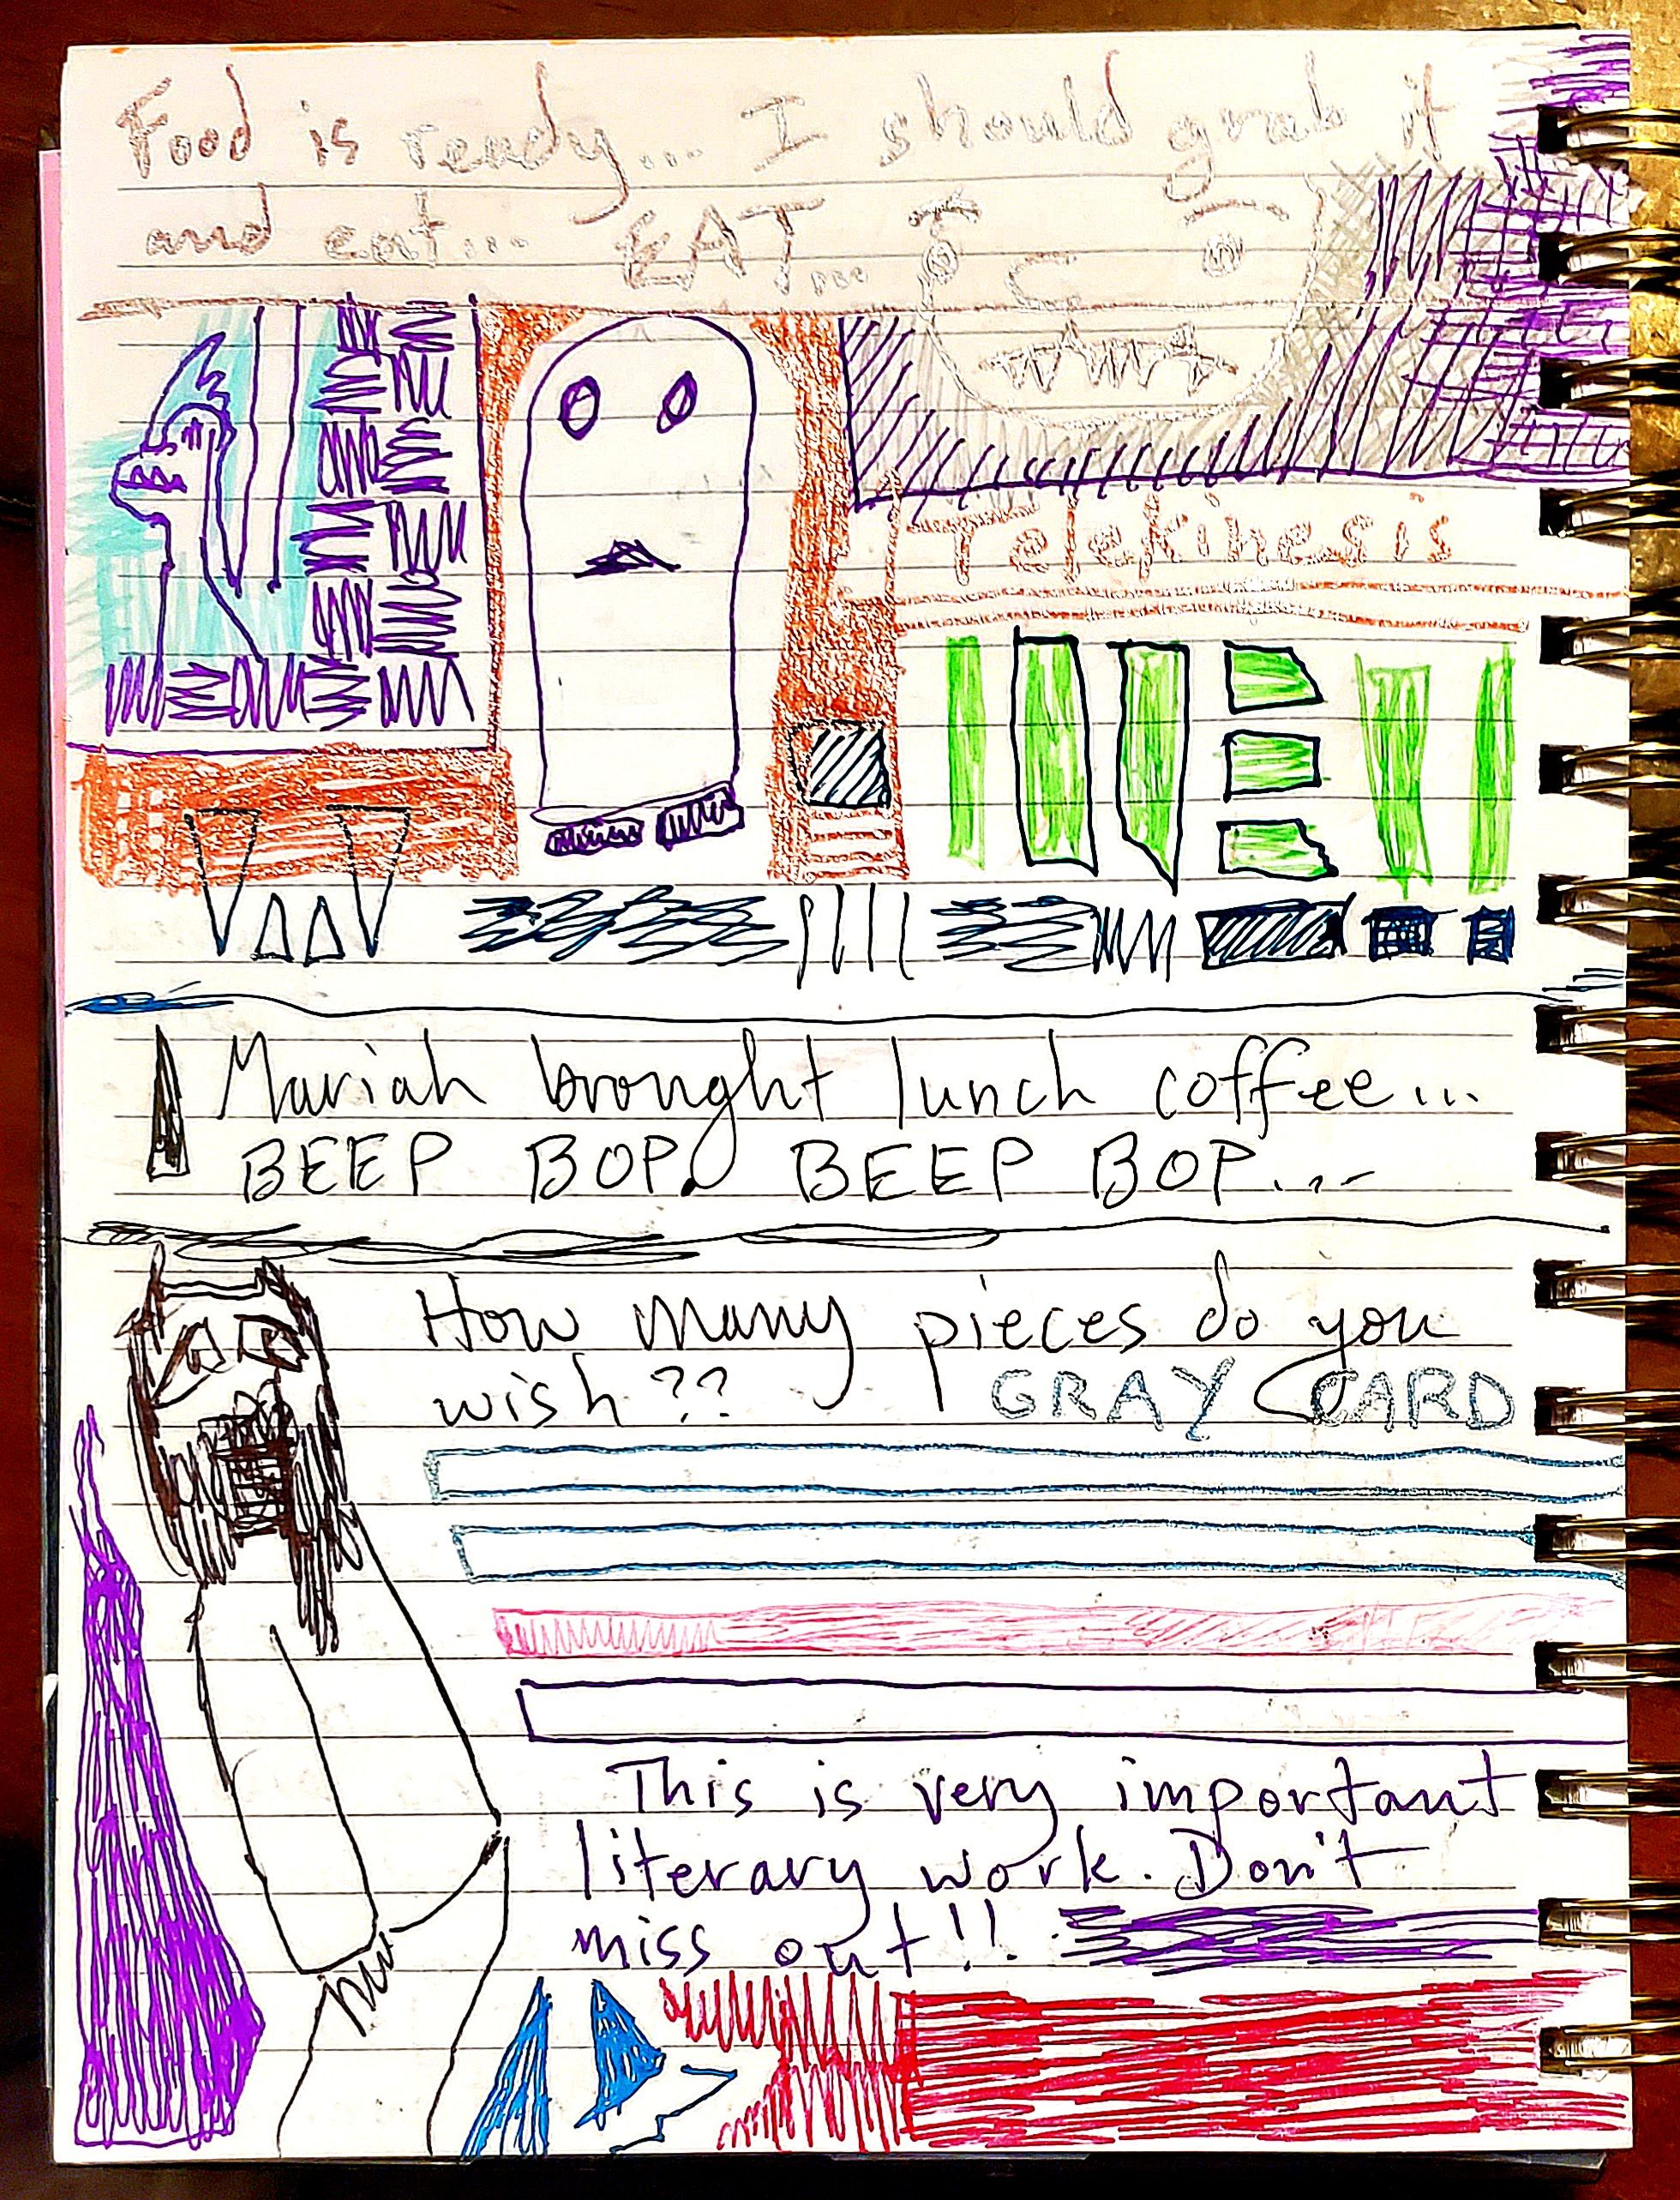 Food is ready... I should grab it
and eat... EAT...
Telekinesis
Mariah brought lunch coffee...
BEEP BOP. BEEP BOP...
How many pieces do you
wish?? GRAY CARD
This is very important
literary work. Don't
miss out!!